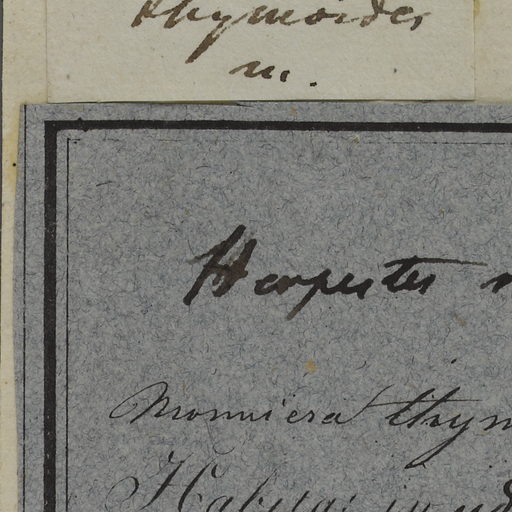 thymoides
m.
Herpestes
Monniera thym
Habitat in ud